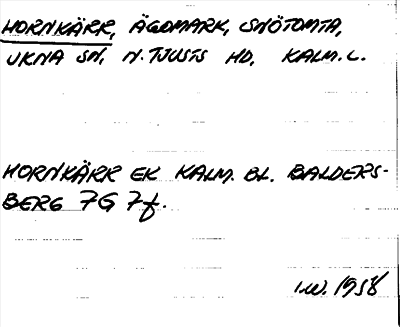 HORNKÄRR, ÄGOMARK, SNÖTOMTA,
UKNA SN, N. TJUSTS HD, KALM. L.
HORNKÄRR EK KALM. BL. BALDERS-
BERG 7G 7f.
I.W. 1958